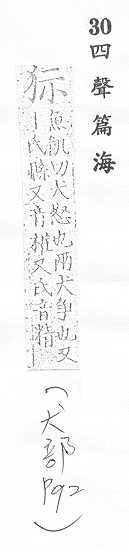 30 四聲篇海
狋
魚飢切犬怒也兩犬爭也又
丨氏縣又音權又氏音精丨
(犬部 P92)